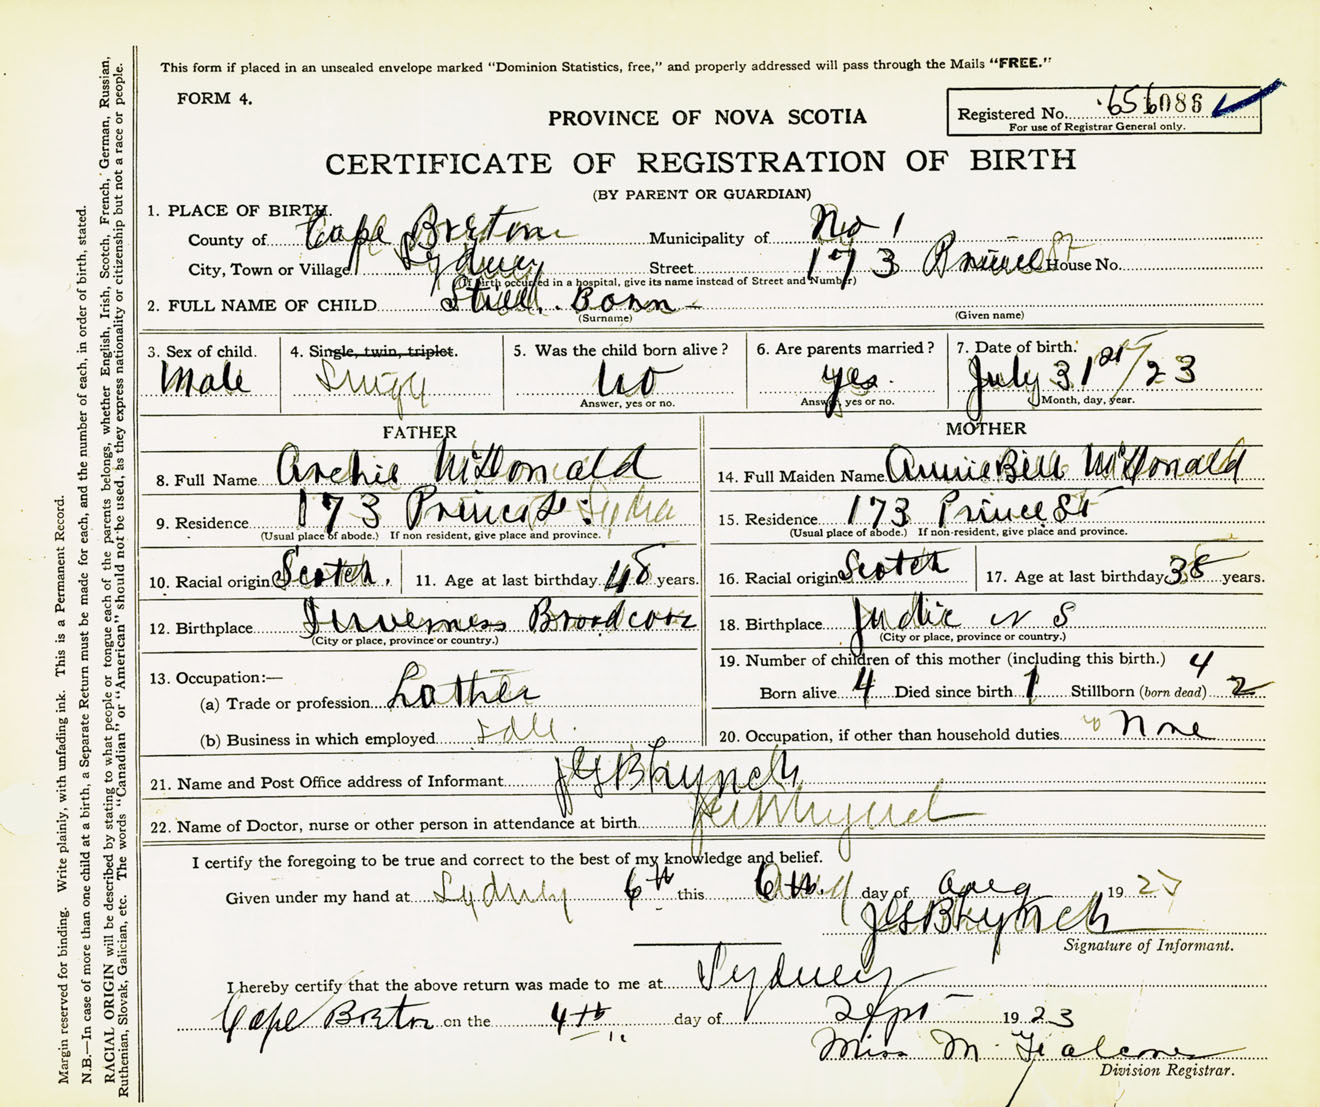 This form if placed in an unsealed envelope marked "Dominion Statistics, free," and properly addressed will pass through the Mails "FREE."
FORM 4.
Registered No. 656086
For use of Registrar General only.
PROVINCE OF NOVA SCOTIA
CERTIFICATE OF REGISTRATION OF BIRTH
(BY PARENT OR GUARDIAN)
1. PLACE OF BIRTH.
County of Cape Breton Municipality of No 1
City, Town or Village Sydney Street 173 Prince St House No.
(If birth occurred in a hospital, give its name instead of Street and Number)
2. FULL NAME OF CHILD Still Born
(Surname) (Given name)
3. Sex of child. 4. Single, twin, triplet. 5. Was the child born alive? 6. Are parents married? 7. Date of birth.
Male Single no yes. July 31st/23
Answer, yes or no. Answer, yes or no. Month, day, year.
FATHER MOTHER
8. Full Name Archie McDonald 14. Full Maiden Name Annie Bell McDonald
9. Residence 173 Prince St. 15. Residence 173 Prince St
(Usual place of abode.) If non resident, give place and province. (Usual place of abode.) If non-resident, give place and province.
10. Racial origin Scotch. 11. Age at last birthday 48 years. 16. Racial origin Scotch 17. Age at last birthday 38 years.
12. Birthplace Inverness Broadcove 18. Birthplace Judic N S
(City or place, province or country.) (City or place, province or country.)
19. Number of children of this mother (including this birth.) 4
13. Occupation:—
(a) Trade or profession Lather Born alive 4 Died since birth 1 Stillborn (born dead) 2
(b) Business in which employed 20. Occupation, if other than household duties None
21. Name and Post Office address of Informant
22. Name of Doctor, nurse or other person in attendance at birth
I certify the foregoing to be true and correct to the best of my knowledge and belief.
Given under my hand at Sydney 6th this 6th. day of Aug 19
Signature of Informant.
I hereby certify that the above return was made to me at Sydney
Cape Breton on the 4th day of Sept 1923
Miss M.
Division Registrar.
Margin reserved for binding. Write plainly, with unfading ink. This is a Permanent Record.
N.B.—In case of more than one child at a birth, a Separate Return must be made for each, and the number of each, in order of birth, stated.
RACIAL ORIGIN will be described by stating to what people or tongue each of the parents belongs, whether English, Irish, Scotch, French, German, Russian,
Ruthenian, Slovak, Galician, etc. The words "Canadian" or "American" should not be used, as they express nationality or citizenship but not a race or people.